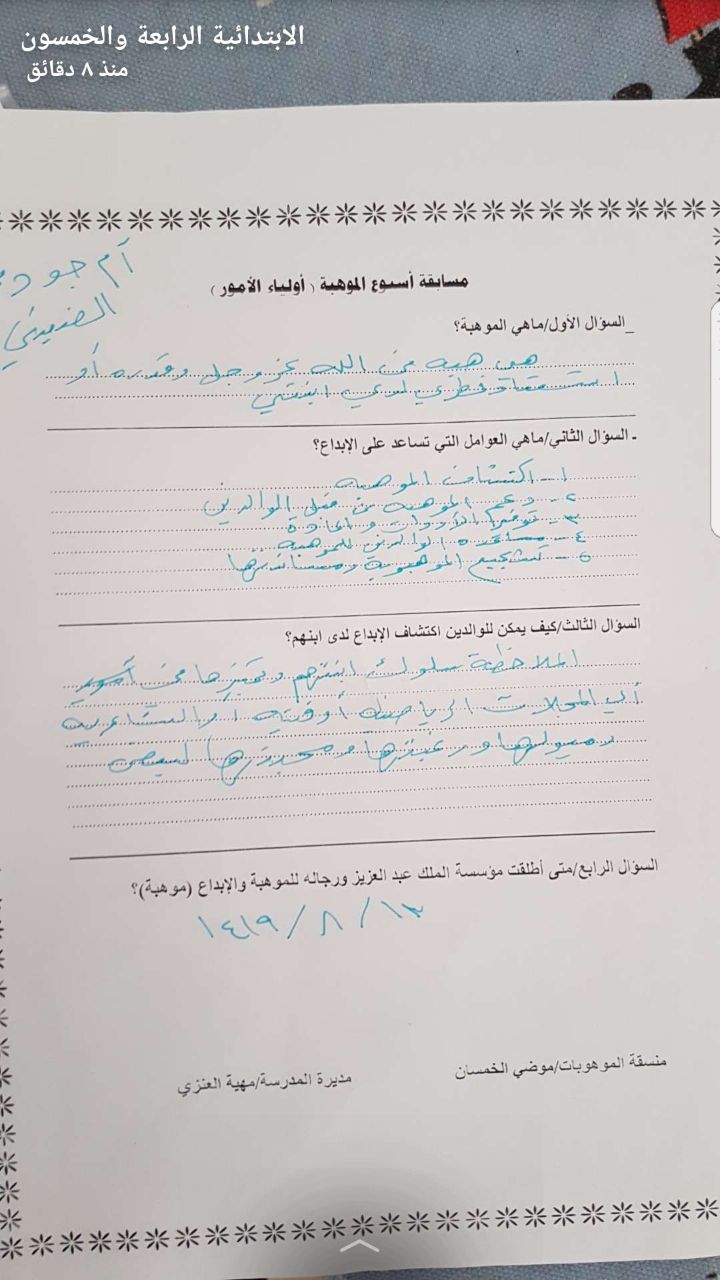 الابتدائية الرابعة والخمسون
منذ ٨ دقائق
أم جود
مسابقة أسبوع الموهبة ( أولياء الأمور )
_السؤال الأول/ماهي الموهبة؟
هي هبة من الله عز وجل وقدره أو
فطري لدى ابنتي
- السؤال الثاني/ماهي العوامل التي تساعد على الإبداع؟
١- اكتشاف الموهبه
٢- دعم الموهبه من قبل الوالدين
٣- توفير الأدوات والمادة
٤- مساعده الوالدين للموهبه
٥- تشجيع الموهوبة ومساندتها
السؤال الثالث/كيف يمكن للوالدين اكتشاف الإبداع لدى ابنهم؟
الملاحظة سلوك ابنتهم وتميزها من
المجلات الرياضية أو فنيه
ميولها ورغبتها
السؤال الرابع/متى أطلقت مؤسسة الملك عبد العزيز ورجاله للموهبة والإبداع (موهبة)؟
١٣ / ٨ / ١٤١٩
منسقة الموهوبات/موضي الخمسان
مديرة المدرسة/مهية العنزي